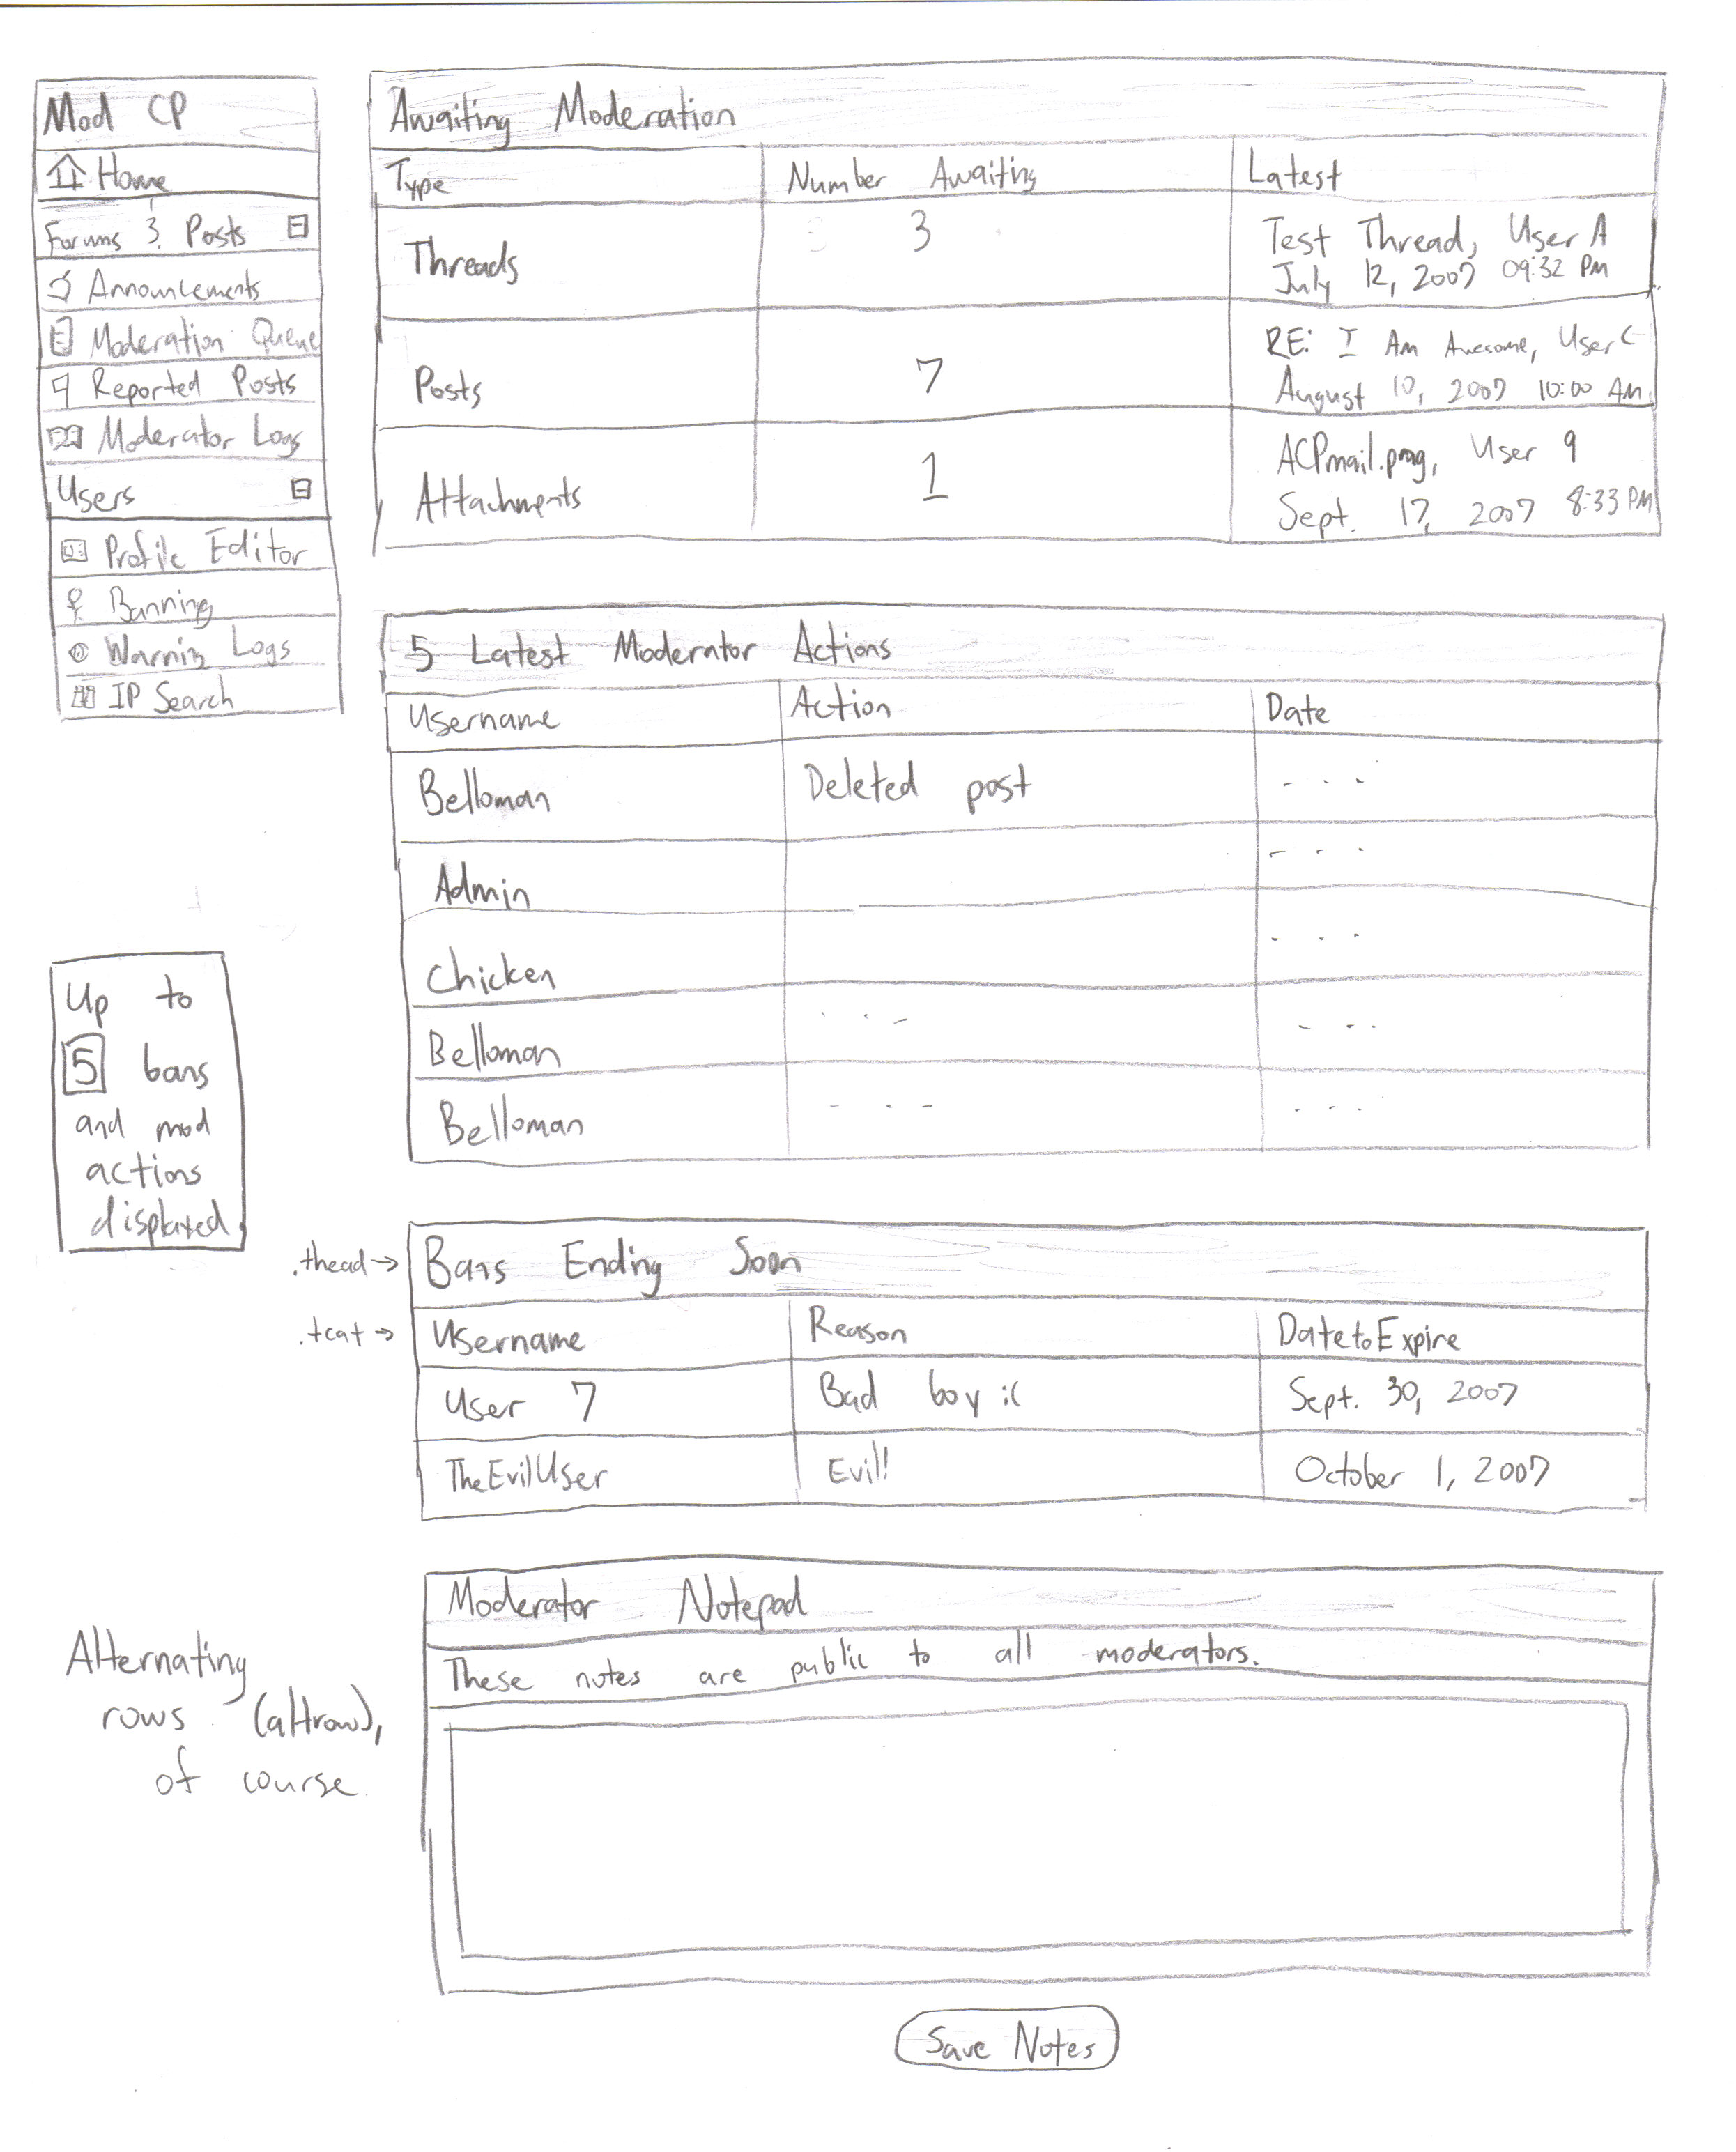 Mod CP
Home
Forums & Posts
Announcements
Moderation Queue
Reported Posts
Moderator Logs
Users
Profile Editor
Banning
Warning Logs
IP Search
Awaiting Moderation
Type Number Awaiting Latest
Threads 3 Test Thread, User A
July 12, 2007 09:32 PM
Posts 7 RE: I Am Awesome, User C
August 10, 2007 10:00 AM
Attachments 1 ACPmail.png, User 9
Sept. 17, 2007 8:33 PM
5 Latest Moderator Actions
Username Action Date
Belloman Deleted post - - -
Admin - - -
Chicken - - -
Belloman - - - - - -
Belloman - - - - - -
Up to
5 bans
and mod
actions
displayed
.thead→ Bans Ending Soon
.tcat→ Username Reason Date to Expire
User 7 Bad boy :(
Sept. 30, 2007
TheEvilUser Evil! October 1, 2007
Moderator Notepad
These notes are public to all moderators.
Alternating
rows (altrow),
of course.
Save Notes